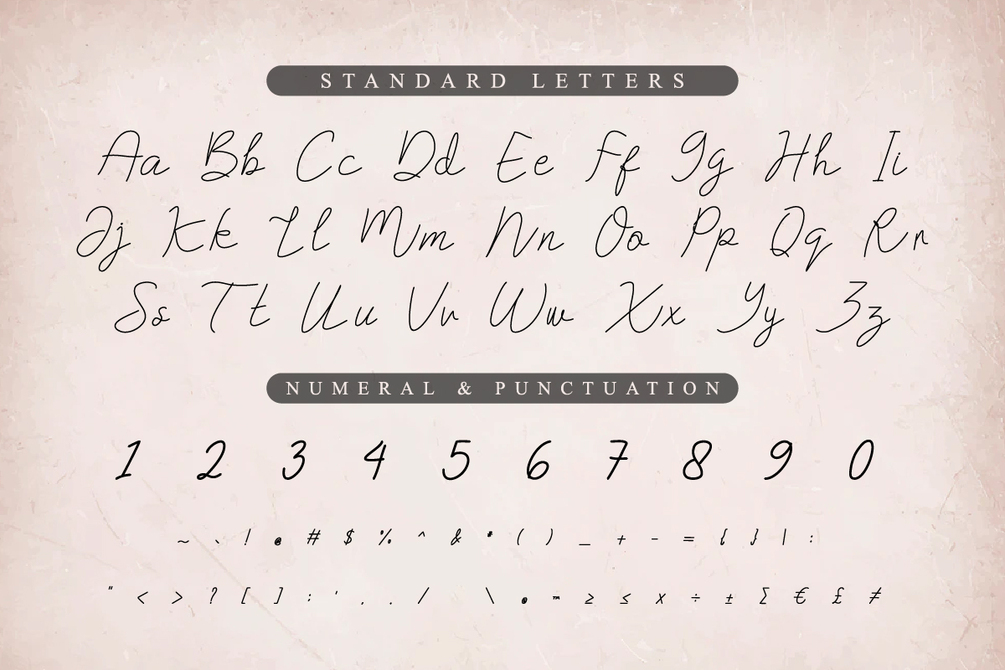 STANDARD LETTERS
Aa Bb Cc Dd Ee Ff Gg Hh Ii
Jj Kk Ll Mm Nn Oo Pp Qq Rr
Ss Tt Uu Vv Ww Xx Yy Zz
NUMERAL & PUNCTUATION
1 2 3 4 5 6 7 8 9 0
~ ` ! @ # $ % ^ & * ( ) _ + - = { } | :
" < > ? [ ] : ' , . / \ ™ ≥ ≤ x ÷ ± ∑ € £ ≠